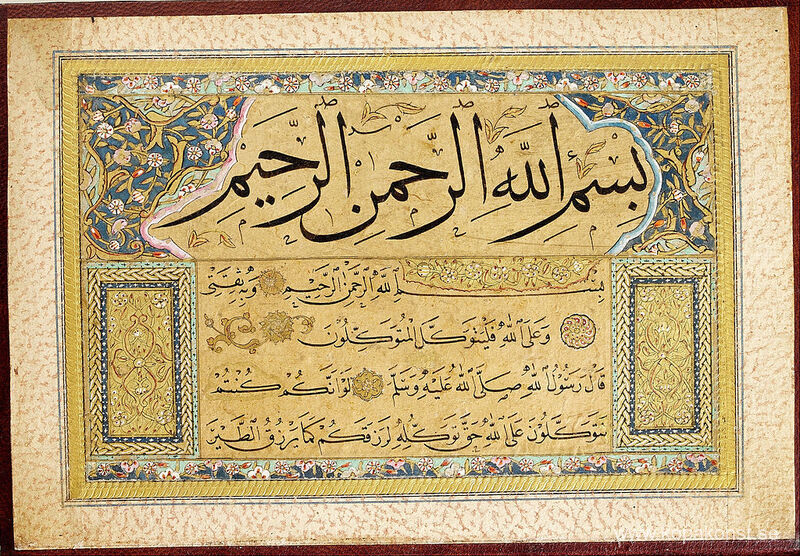 بِسْمِ اللّٰهِ الرَّحْمٰنِ الرَّحِيْمِ
بِسْمِ اللّٰهِ الرَّحْمٰنِ الرَّحِيْمِ وَبِهِ ثِقَتِي
وَعَلَى اللّٰهِ فَلْيَتَوَكَّلِ الْمُتَوَكِّلُونَ
قَالَ رَسُولُ اللّٰهِ صَلَّى اللّٰهُ عَلَيْهِ وَسَلَّمَ لَوْ اَنَّكُمْ كُنْتُمْ
تَتَوَكَّلُونَ عَلَى اللّٰهِ حَقَّ تَوَكُّلِهِ لَرَزَقَكُمْ كَمَا يَرْزُقُ الطَّيْرَ